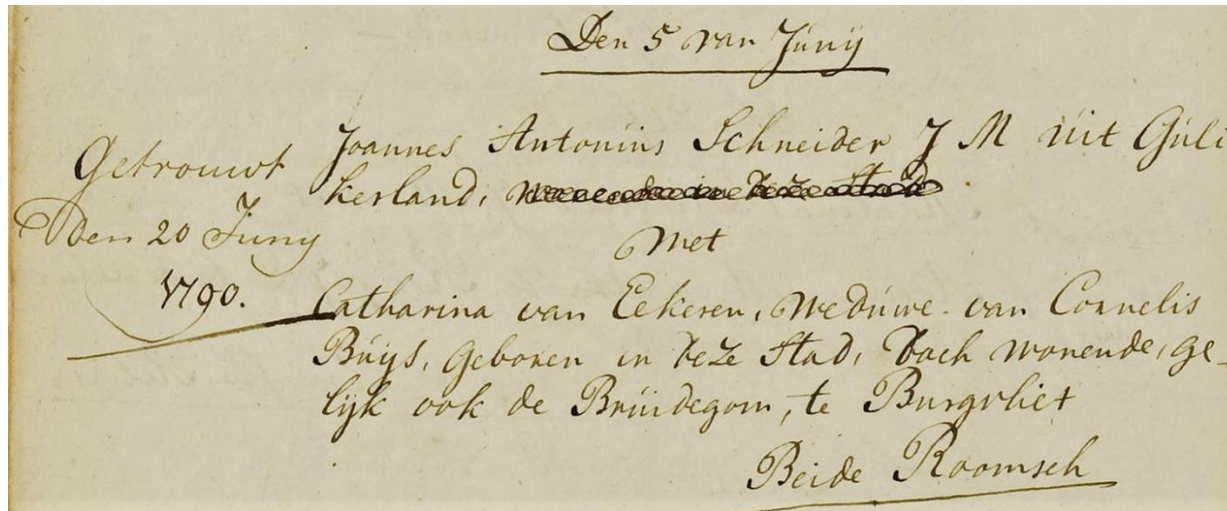 Den 5 van Junij
Getrouwt
den 20 Juny
1790.
Joannes Antonius Schneider J M uit Guli
kerland, wonende in deze Stad
Met
Catharina van Eekeren, Weduwe van Cornelis
Buys, geboren in deze Stad, doch wonende, ge-
lijk ook de Bruidegom, te Burgvliet
Beide Roomsch